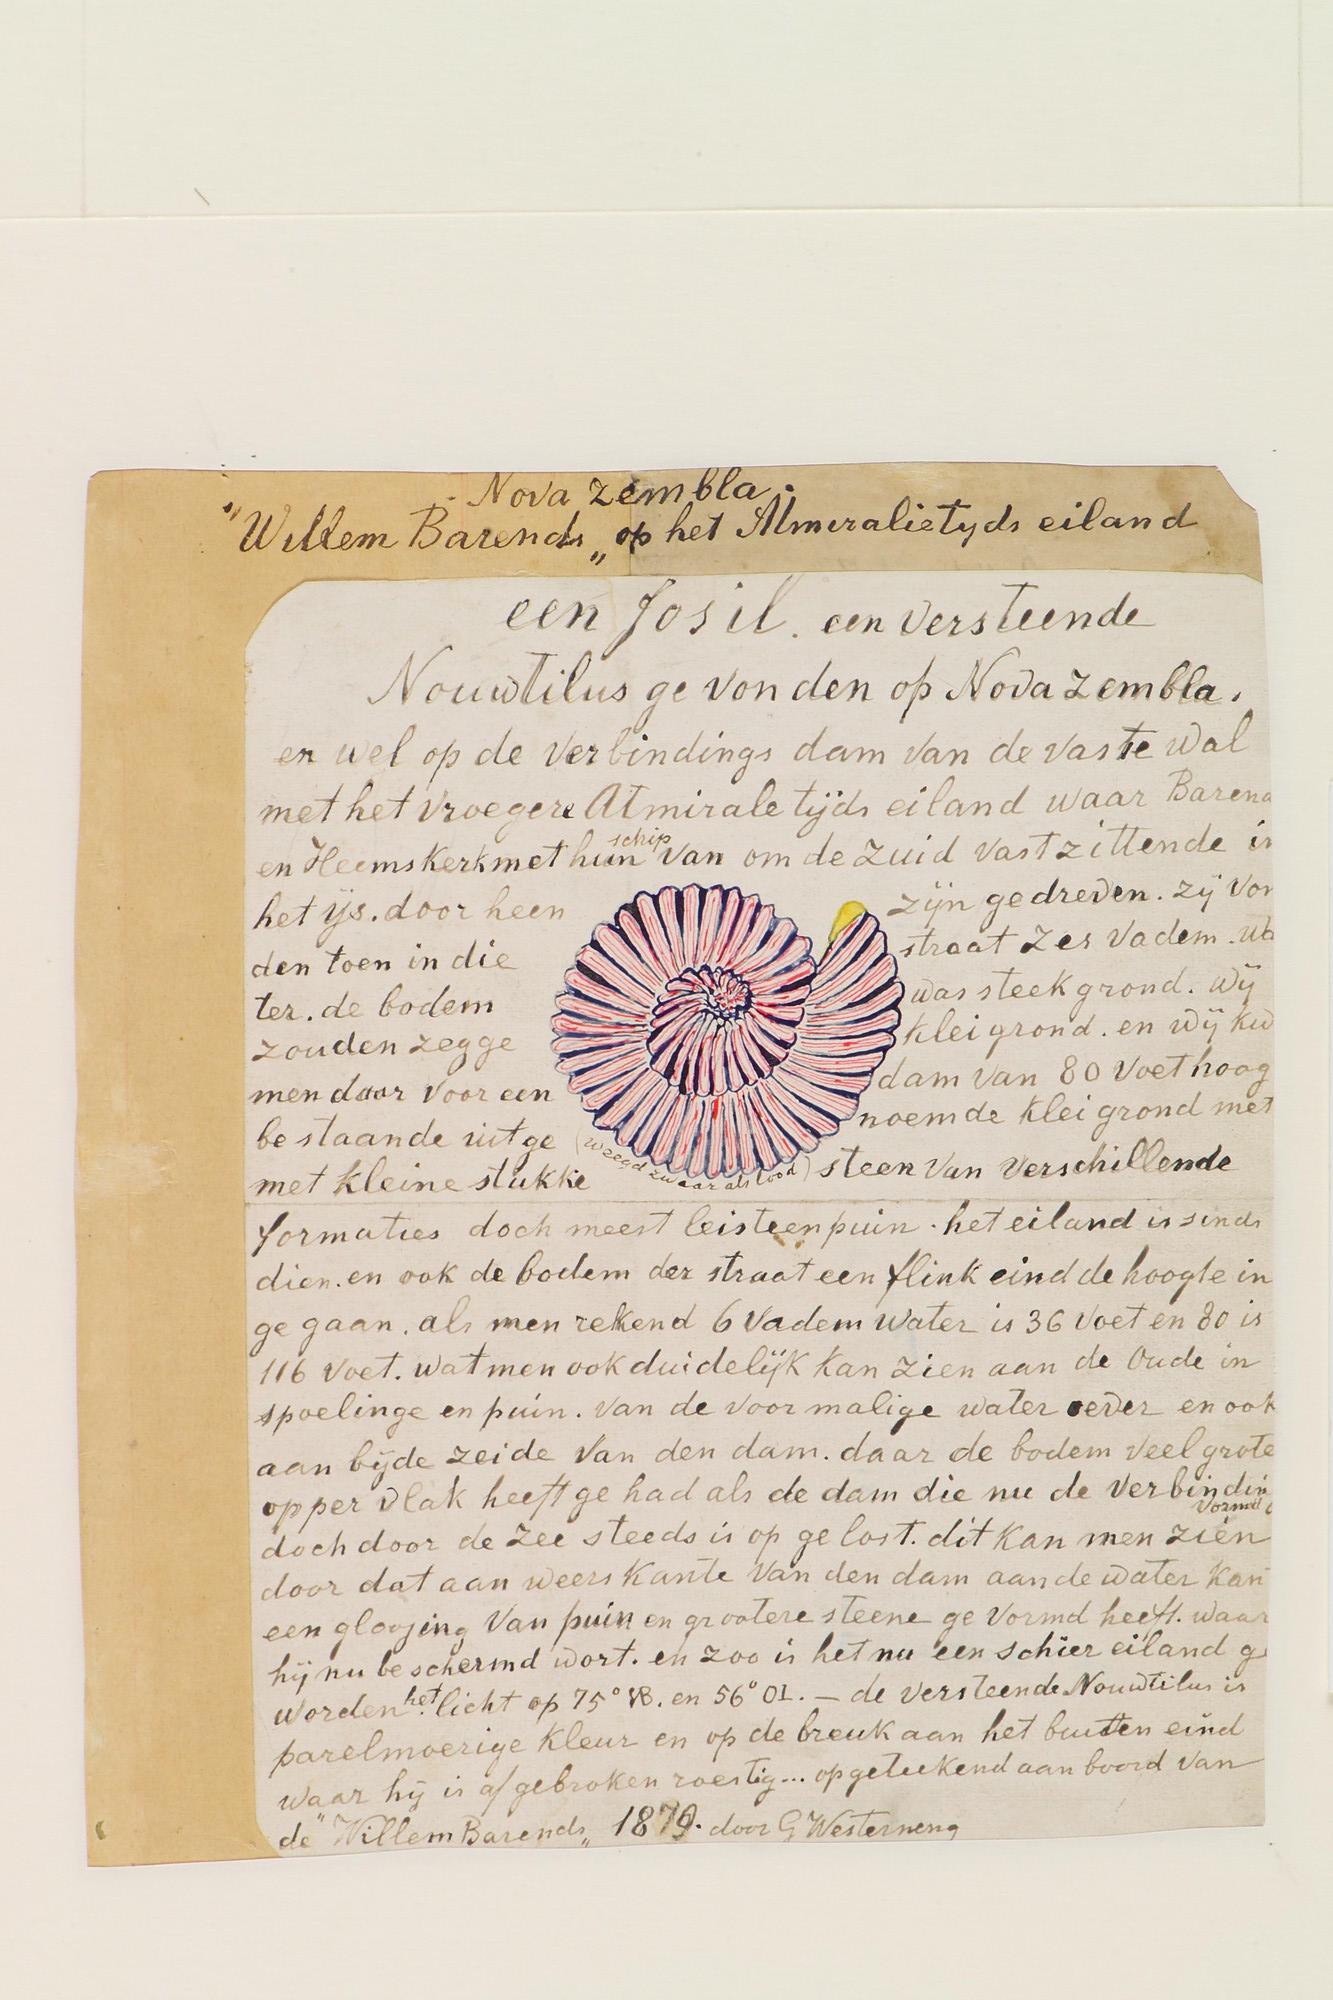 Nova zembla.
"Willem Barends„ op het Almiralietyds eiland
een fosil. een versteende
Nouwtilus ge vonden op Nova zembla.
en wel op de verbindings dam van de vaste wal
met het vroegere Atmirale tijds eiland waar Barend
en Heemskerk met hun schip van om de zuid vast zittende in
het ijs. door heen zijn gedreven. zij von
den toen in die straat zes vadem. wa
ter. de bodem was steek grond. wij
zouden zegge kleigrond. en wij kw
men daar voor een dam van 80 voet hoog
be staande uit ge noemde klei grond met
met kleine stukke (weegd zwaar als lood) steen van verschillende
formaties doch meest leisteen puin. het eiland is sinds
dien. en ook de bodem der straat een flink eind de hoogte in
ge gaan. als men rekend 6 vadem water is 36 voet en 80 is
116 voet. wat men ook duidelijk kan zien aan de oude in
spoelinge en puin. van de voor malige water oever en ook
aan bijde zeide van den dam. daar de bodem veel grote
opper vlak heeft ge had als de dam die nu de verbindin
vormd
doch door de zee steeds is op ge lost. dit kan men zien
door dat aan weers kante van den dam aan de water kan
een gloojing van puin en grootere steene ge vormd heeft. waar
hij nu be schermd wort. en zoo is het nu een schier eiland ge
worden. het licht op 75° NB. en 56° OL. — de versteende Nouwtilus is
parelmoerige kleur en op de breuk aan het buiten eind
waar hij is afgebroken roestig... opgeteekend aan boord van
de "Willem Barends„ 1879. door G Westerneng